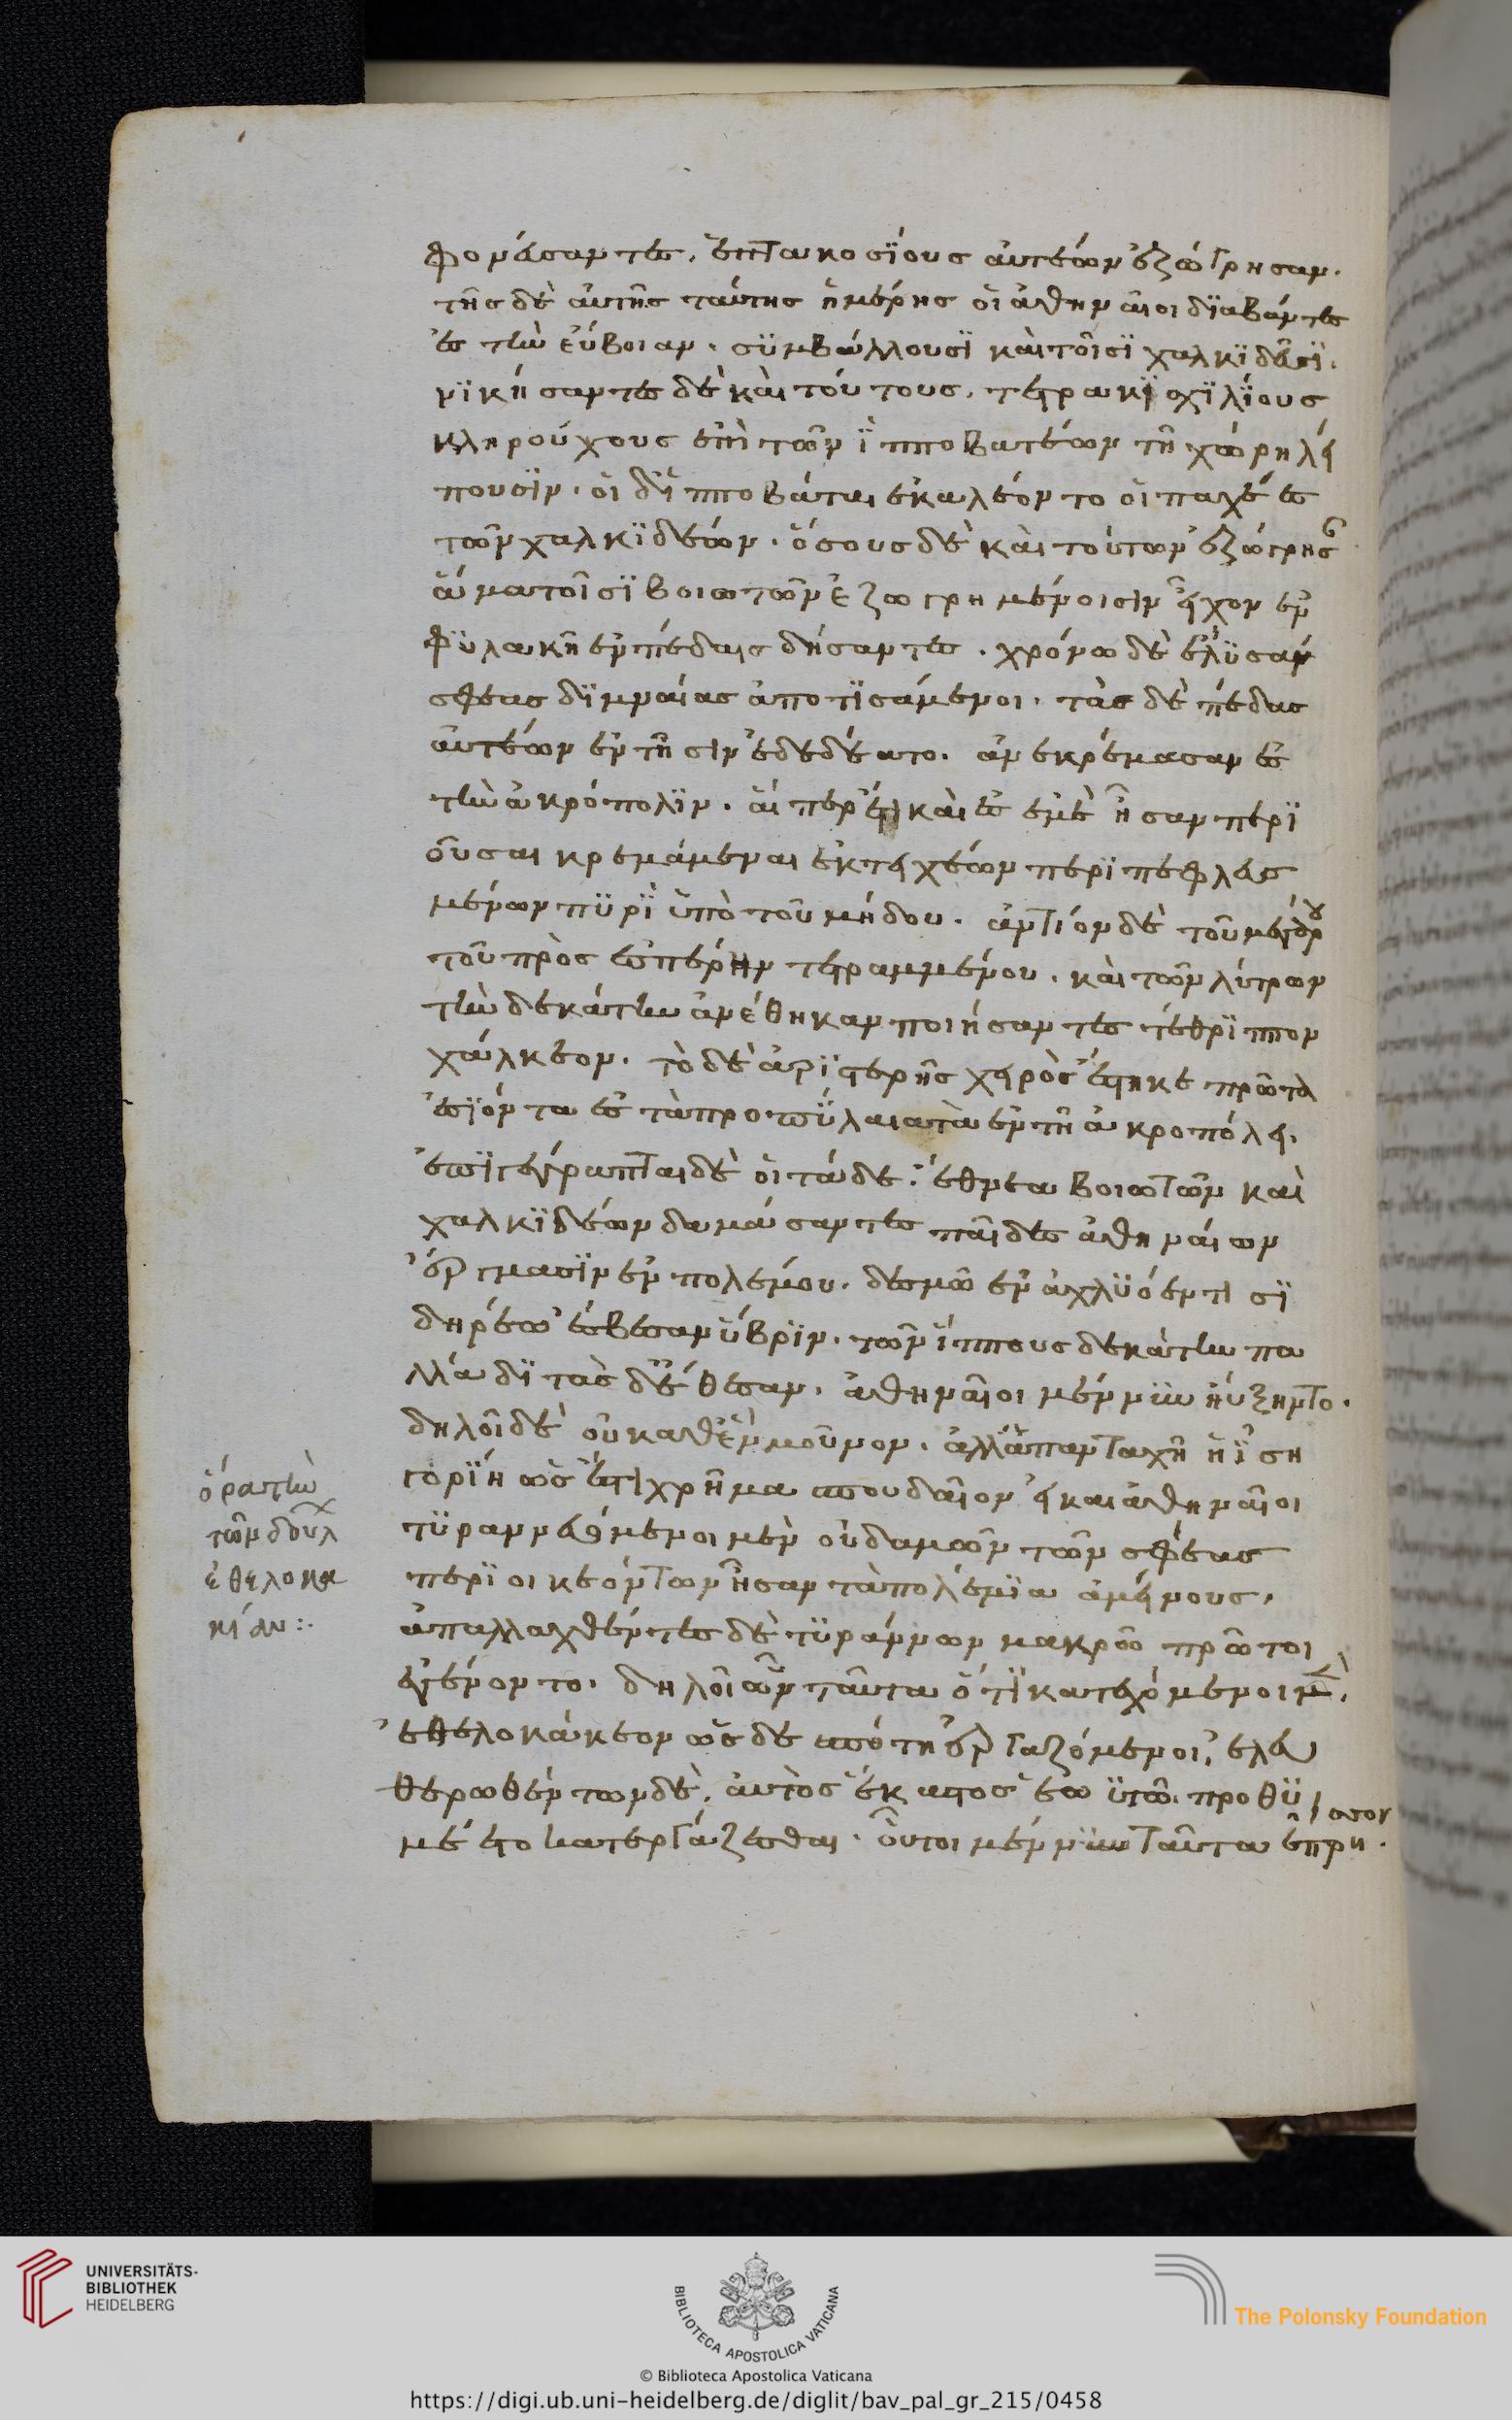 φονεύσαντες. ἑπτακοσίους αὐτέων ἐζώγρησαν.
τῆς δὲ αὐτῆς ταύτης ἡμέρης οἱ ἀθηναῖοι διαβάντες
ἐς τὴν εὔβοιαν. συμβάλλουσι καὶ τοῖσι χαλκιδεῦσι.
νικήσαντες δὲ καὶ τούτους. τετρακισχιλίους
κληρούχους ἐπὶ τῶν ἱπποβατέων τῇ χώρῃ λεί
πουσιν. οἱ δ' ἱπποβάται ἐκαλέοντο οἱ παχέες
τῶν χαλκιδέων. ὅσους δὲ καὶ τούτων ἐζώγρησαν
ἅμα τοῖσι βοιωτῶν ἐζωγρημένοισιν εἶχον ἐν
φυλακῇ ἐν πέδαις δήσαντες. χρόνω δὲ ἔλυσάν
σφεας διμναίας ἀποτισάμενοι. τὰς δὲ πέδας
αὐτέων ἐν τῇσιν ἐδεδέατο. ἀνεκρέμασαν ἐς
τὴν ἀκρόπολιν. αἵπερ ἔτι καὶ ἐς ἐμὲ ἦσαν περι
οῦσαι κρεμάμεναι ἐκ τειχέων περιπεφλευς
μένων πυρὶ ὑπὸ τοῦ μήδου. ἀντίον δὲ τοῦ μεγάρου
τοῦ πρὸς ἑσπέρην τετραμμένου. καὶ τῶν λύτρων
τὴν δεκάτην ἀνέθηκαν ποιήσαντες τέθριππον
χάλκεον. τὸ δὲ ἀριστερῆς χειρὸς ἕστηκε πρῶτα
ἐσιόντα ἐς τὰ προπύλαια τὰ ἐν τῇ ἀκροπόλει.
ἐπιγέγραπται δὲ οἱ τάδε. ἔθνεα βοιωτῶν καὶ
χαλκιδέων δαμάσαντες παῖδες ἀθηναίων
ἔργμασιν ἐν πολέμου. δεσμῶ ἐν ἀχλυόεντι σι
δηρέω ἔσβεσαν ὕβριν. τῶν ἵππους δεκάτην πα
λλάδι τὰς δ' ἔθεσαν. ἀθηναῖοι μέν νυν ηὔξηντο.
δηλοῖ δὲ οὐ καθ' ἓν μοῦνον. ἀλλὰ πανταχῇ ἡ ἰση
γορίη ὡς ἔστι χρῆμα σπουδαῖον εἰ καὶ ἀθηναῖοι
τυραννευόμενοι μὲν οὐδαμῶν τῶν σφέας
περιοικεόντων ἦσαν τὰ πολέμια ἀμείνους.
ἀπαλλαχθέντες δὲ τυράννων μακρῶ πρῶτοι
ἐγένοντο. δηλοῖ ὦν ταῦτα ὅτι κατεχόμενοι μὲν.
ἐθελοκάκεον ὡς δεσπότῃ ἐργαζόμενοι. ἐλευ
θερωθέντων δὲ. αὐτὸς ἕκαστος ἑωυτῶ. προθυ
μέετο κατεργάζεσθαι. οὗτοι μέν νυν ταῦτα ἔπρη.
σσον
ὅρα τὴν
τῶν δούλ
ἐθελοκα
κίαν:.
UNIVERSITÄTS-
BIBLIOTHEK
HEIDELBERG
BIBLIOTECA APOSTOLICA VATICANA
The Polonsky Foundation
© Biblioteca Apostolica Vaticana
https://digi.ub.uni-heidelberg.de/diglit/bav_pal_gr_215/0458